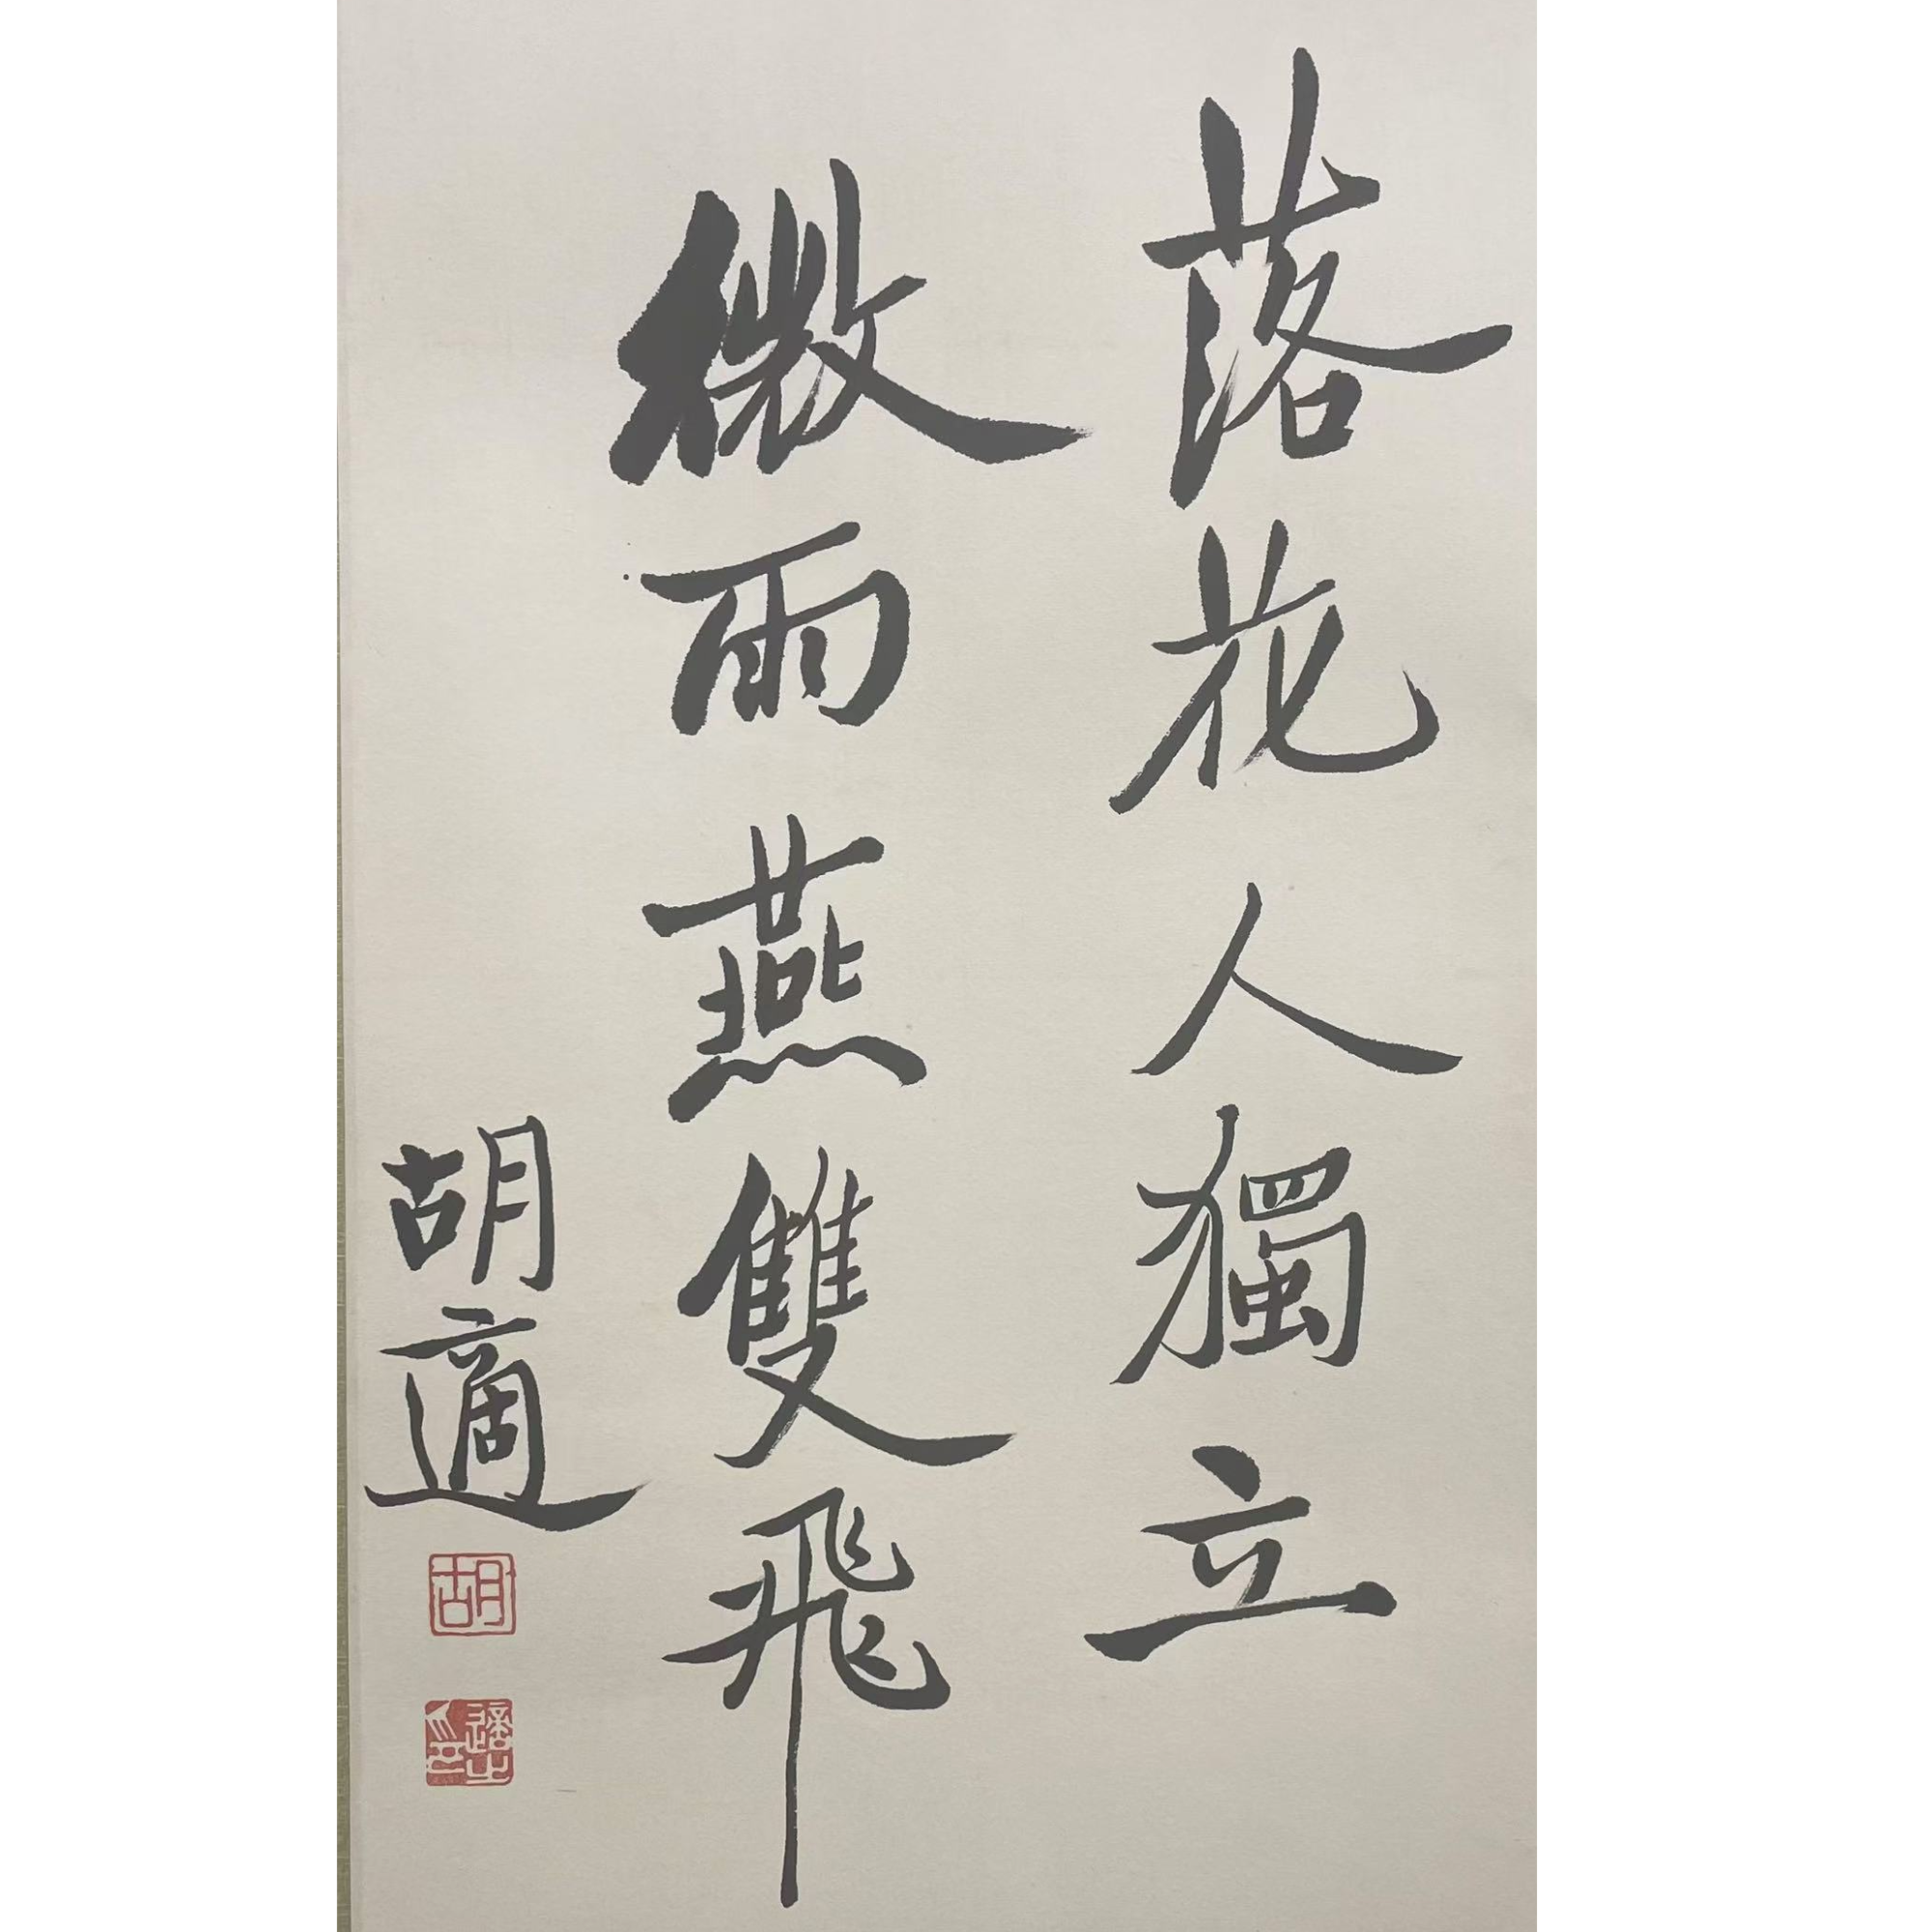 落花人獨立
微雨燕雙飛
胡適
胡
適之
印